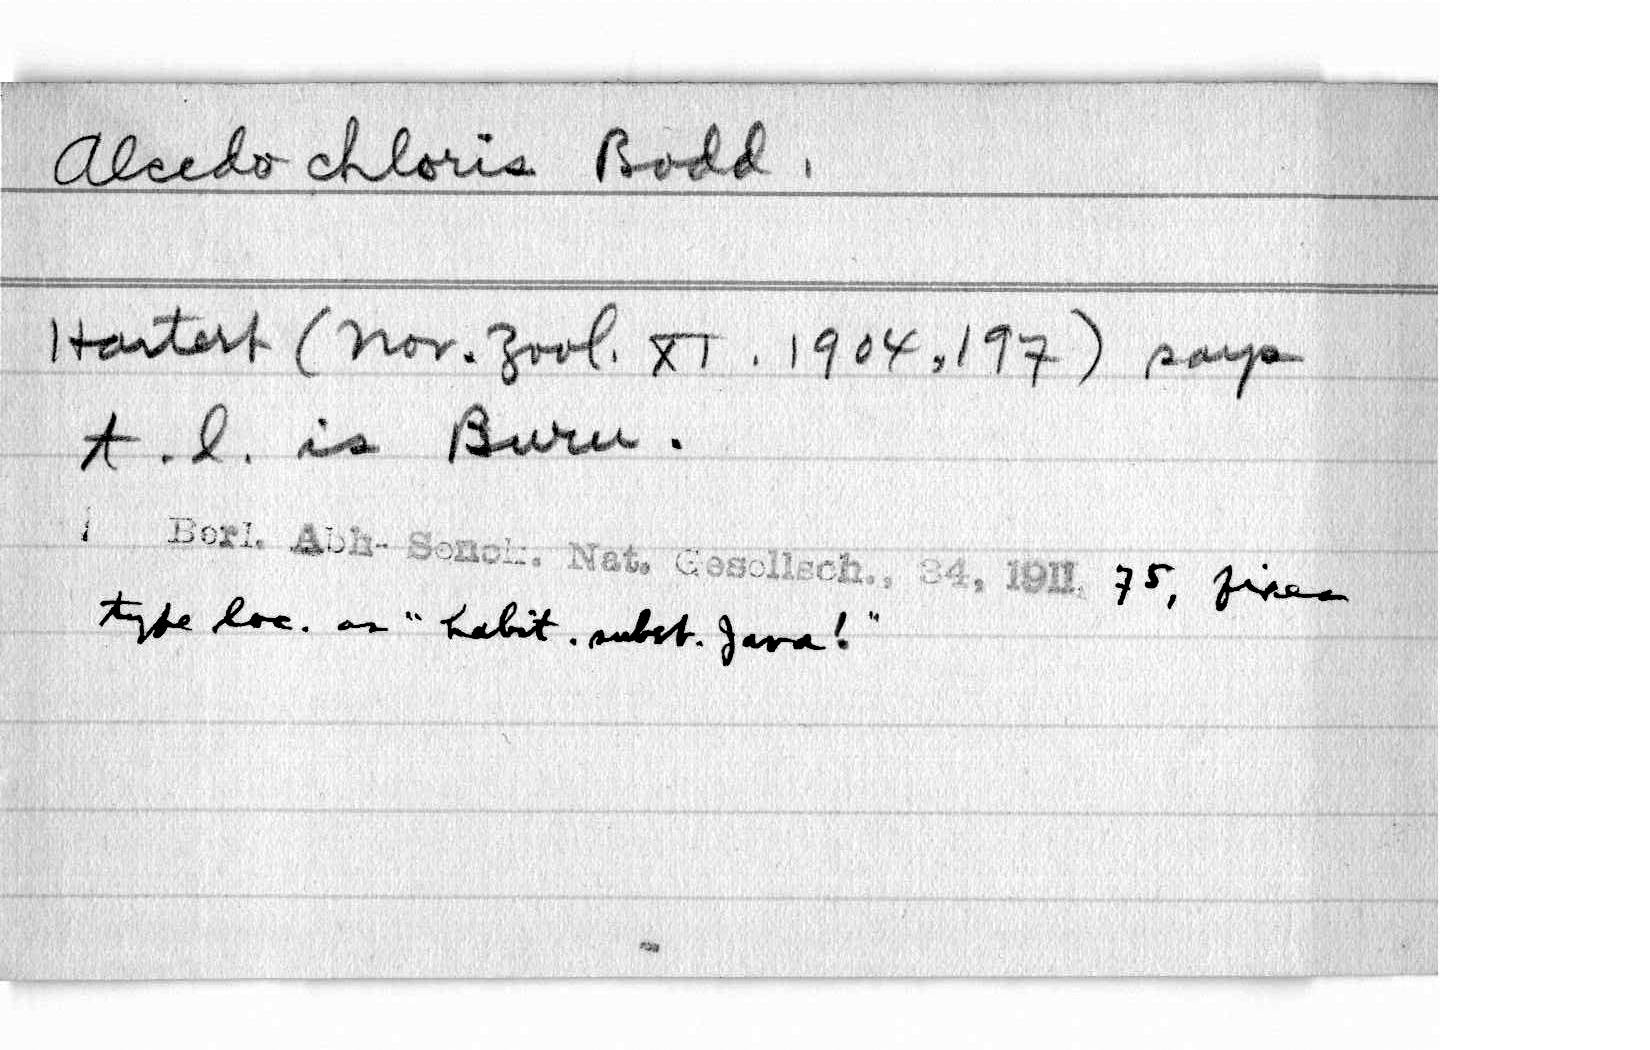 Alcedo chloris Bodd.
Hartert (Nov. Zool. XI. 1904, 197) says
t.l. is Buru.
Berl. Abh- Senck. Nat. Gesellsch., 34, 1911, 75, fixes
type loc. as "habit. subst. Java!"